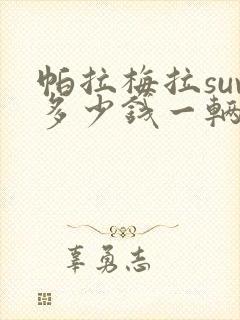 帕拉梅拉suv
多少钱一辆
辜勇志